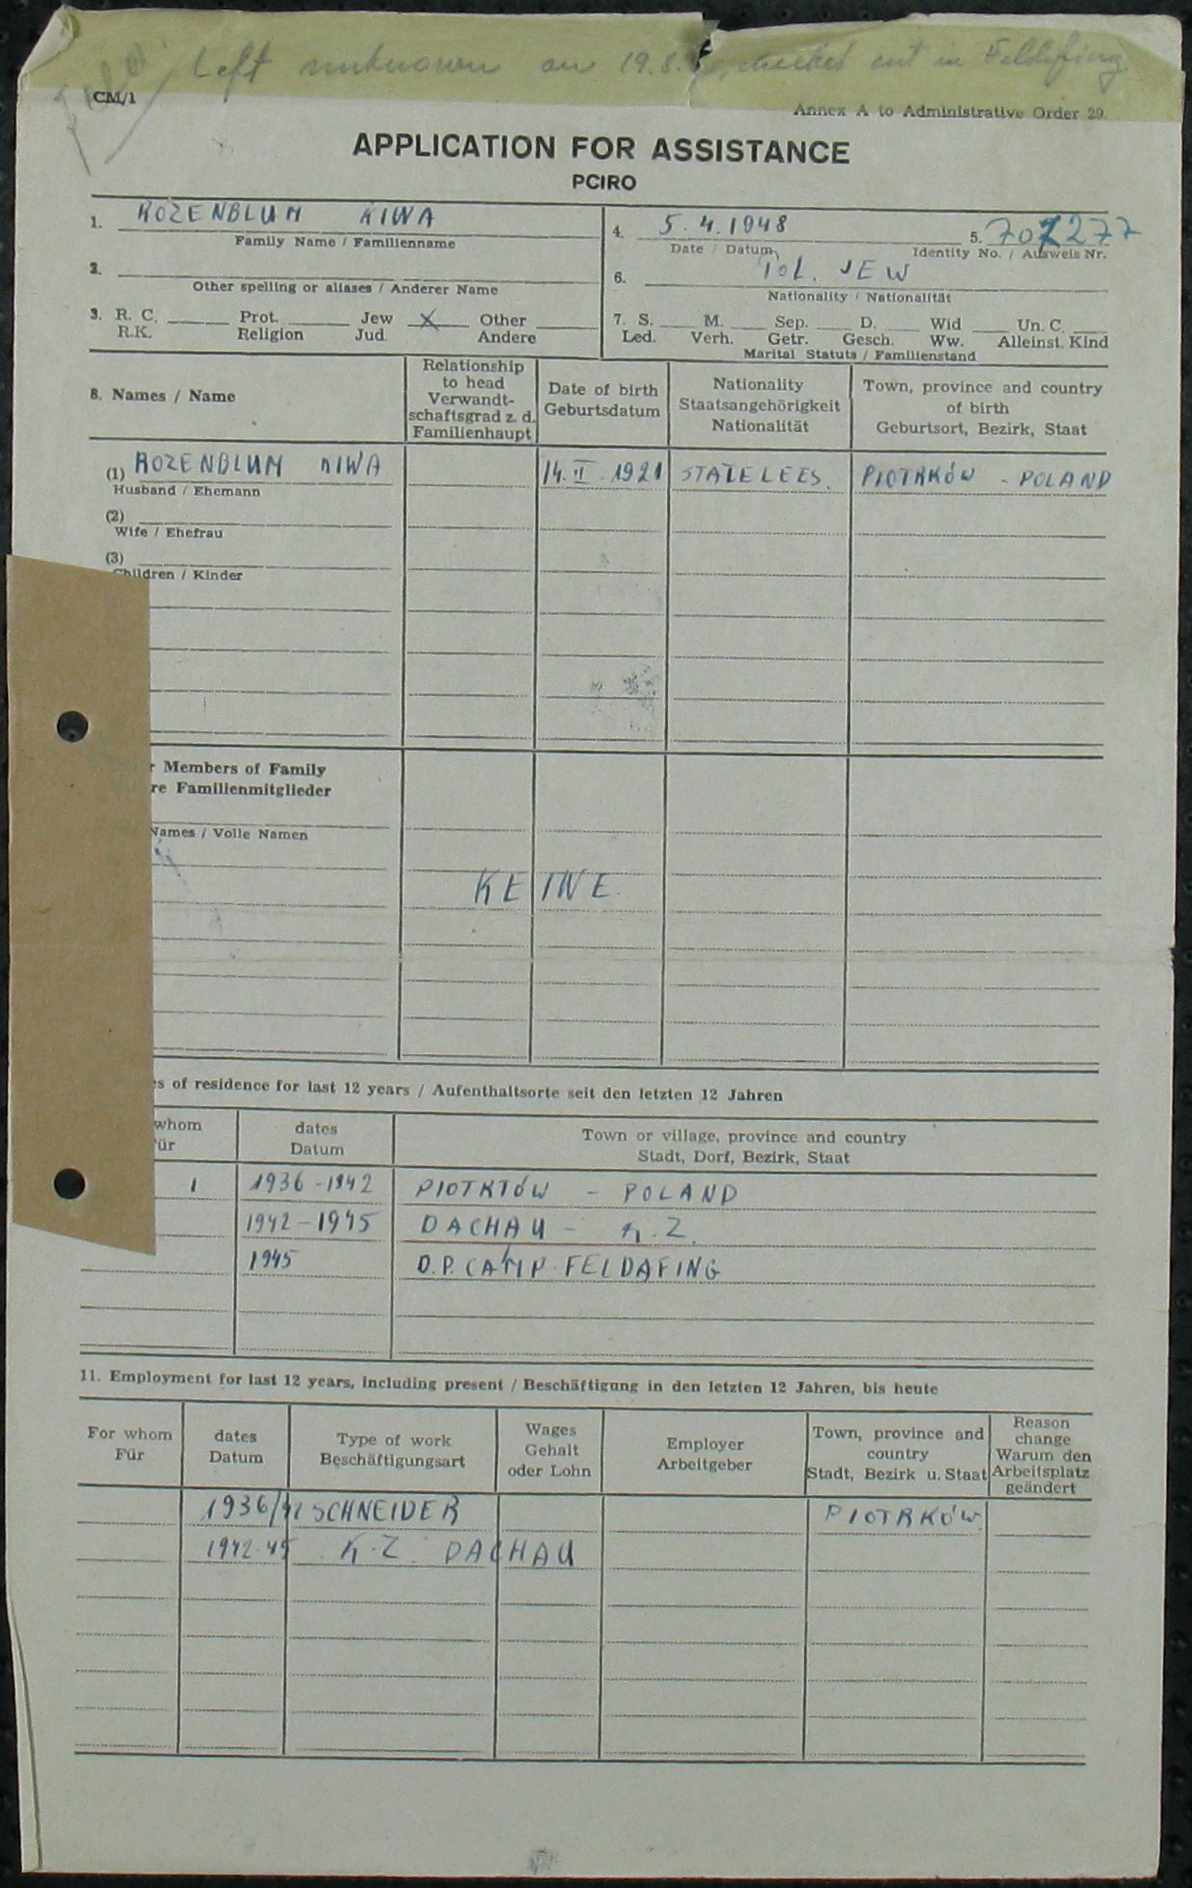 Left unknown on 19.8. checked out in Feldafing
CM/1
Annex A to Administrative Order 29.
APPLICATION FOR ASSISTANCE
PCIRO
1. ROZENBLUM KIWA
Family Name / Familienname
4. 5.4.1948
Date / Datum
5. 707277
Identity No. / Ausweis Nr.
2.
Other spelling or aliases / Anderer Name
6. POL. JEW
Nationality / Nationalität
3. R. C. Prot. Jew X Other
R.K. Religion Jud. Andere
7. S. M. Sep. D. Wid Un. C.
Led. Verh. Getr. Gesch. Ww. Alleinst. Kind
Marital Statuts / Familienstand
8. Names / Name
Relationship
to head
Verwandt-
schaftsgrad z. d.
Familienhaupt
Date of birth
Geburtsdatum
Nationality
Staatsangehörigkeit
Nationalität
Town, province and country
of birth
Geburtsort, Bezirk, Staat
(1) ROZENBLUM KIWA 14. II . 1921 STATELEES. PIOTRKÓW - POLAND
Husband / Ehemann
(2)
Wife / Ehefrau
(3)
Children / Kinder
r Members of Family
re Familienmitglieder
Names / Volle Namen
KEINE.
s of residence for last 12 years / Aufenthaltsorte seit den letzten 12 Jahren
whom
ür
dates
Datum
Town or village, province and country
Stadt, Dorf, Bezirk, Staat
1 1936-1942 PIOTKTÓW - POLAND
1942-1945 DACHAU - K.Z.
1945 D.P. CAMP FELDAFING
11. Employment for last 12 years, including present / Beschäftigung in den letzten 12 Jahren, bis heute
For whom
Für
dates
Datum
Type of work
Beschäftigungsart
Wages
Gehalt
oder Lohn
Employer
Arbeitgeber
Town, province and
country
Stadt, Bezirk u. Staat
Reason
change
Warum den
Arbeitsplatz
geändert
1936/42 SCHNEIDER PIOTRKÓW
1942-45 K.Z. DACHAU